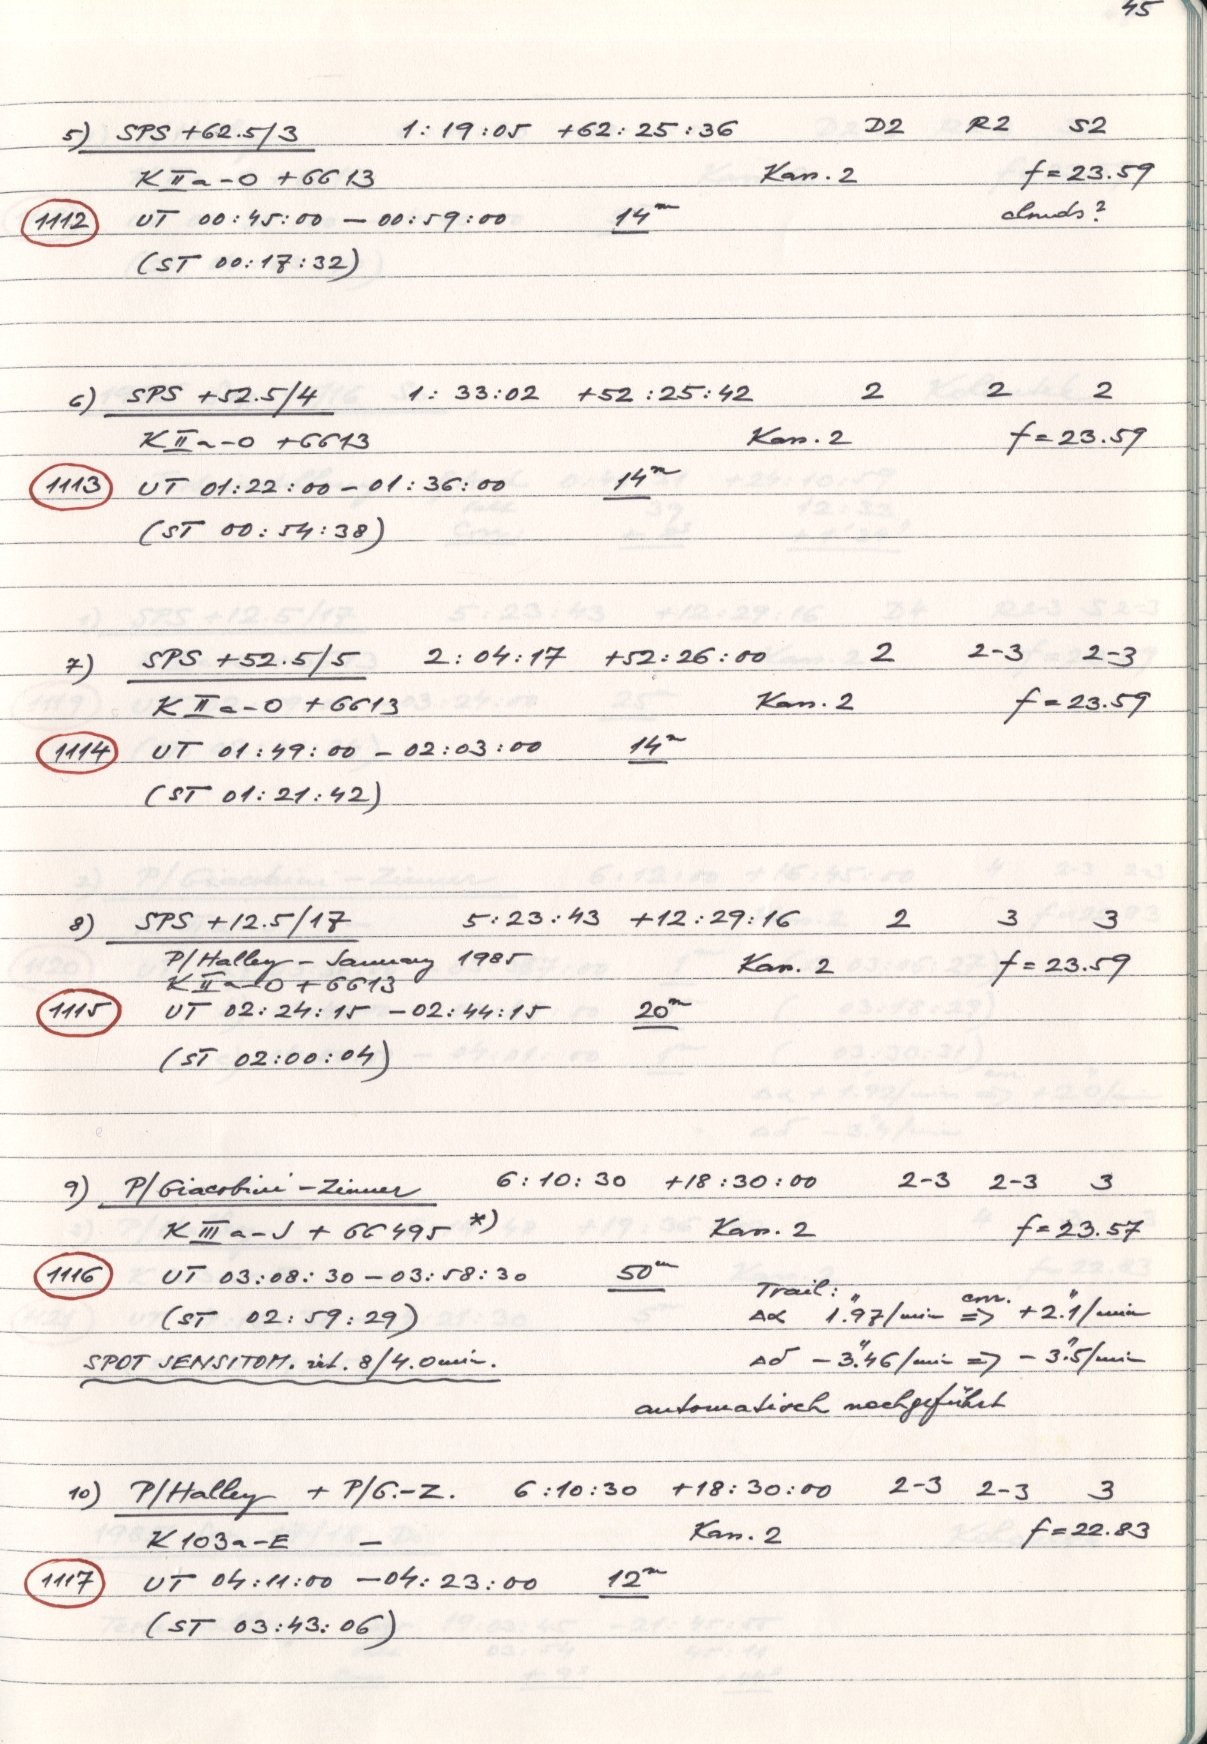 45
5) SPS +62.5/3 1:19:05 +62:25:36 D2 R2 S2
K IIa-O +GG13 Kass. 2 f=23.59
1112 UT 00:45:00 – 00:59:00 14m clouds?
(ST 00:17:32)
6) SPS +52.5/4 1:33:02 +52:25:42 2 2 2
K IIa-O +GG13 Kass. 2 f=23.59
1113 UT 01:22:00 – 01:36:00 14m
(ST 00:54:38)
7) SPS +52.5/5 2:04:17 +52:26:00 2 2-3 2-3
K IIa-O +GG13 Kass. 2 f=23.59
1114 UT 01:49:00 – 02:03:00 14m
(ST 01:21:42)
8) SPS +12.5/17 5:23:43 +12:29:16 2 3 3
P/Halley – January 1985 Kass. 2 f=23.59
K IIa-O +GG13
1115 UT 02:24:15 – 02:44:15 20m
(ST 02:00:04)
9) P/Giacobini-Zinner 6:10:30 +18:30:00 2-3 2-3 3
K IIIa-J + GG495 *) Kass. 2 f=23.57
1116 UT 03:08:30 – 03:58:30 50m Trail:
(ST 02:59:29) Δα 1."97/min corr. => +2."1/min
SPOT SENSITOM. 8/4.0min. Δδ –3."46/min => –3."5/min
automatisch nachgeführt
10) P/Halley + P/G.-Z. 6:10:30 +18:30:00 2-3 2-3 3
K 103a-E – Kass. 2 f=22.83
1117 UT 04:11:00 – 04:23:00 12m
(ST 03:43:06)